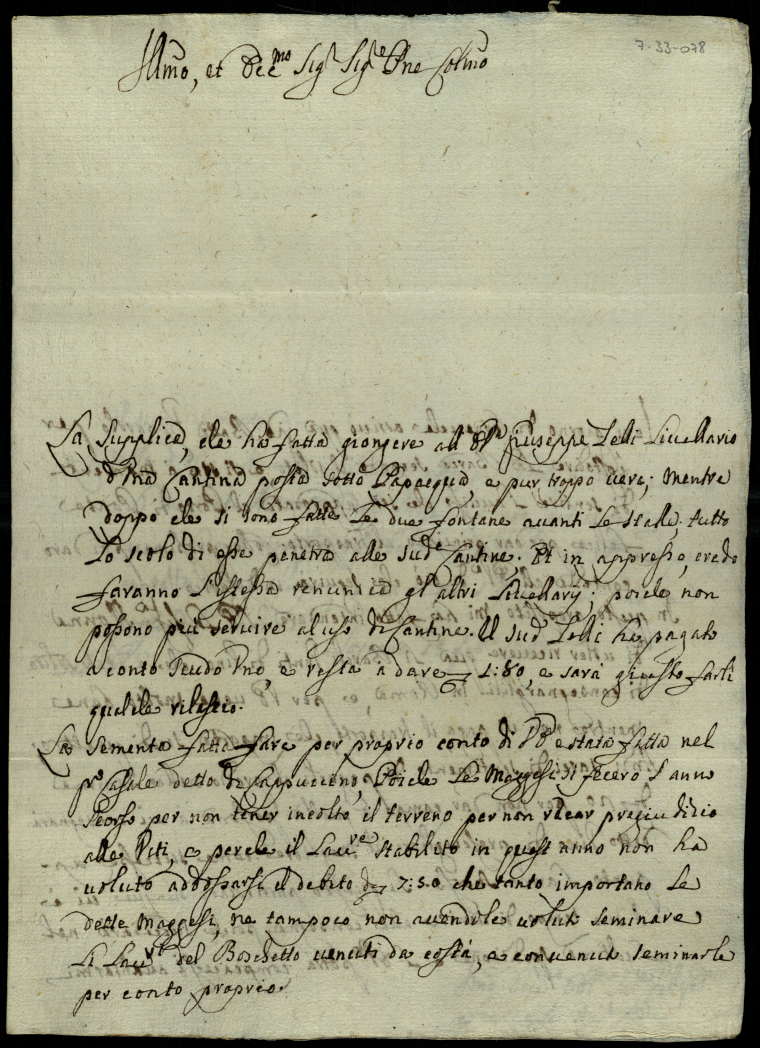 7-33-078
Illmo, et Ecc.mo Sig.r Sig.re Pne Colmo
La Supplica, che ha fatta giongere all' Giuseppe Zelli Livellario
d'Una Cantina posta sotto Papacqua, e pur troppo vera; mentre
doppo che si sono fatte le due fontane avanti le stalle, tutto
Lo scolo di esse penetra alle sud.e Cantine. Et in appresso, credo
faranno l'istessa renuncia gl'altri Livellarij; poiche non
possono più servire al uso di Cantine. Il sud. Zelli ha pagato
a conto Scudo Uno, e resta a dare 1:80, e sarà giusto farli
qualche rilascio.
La Sementa fatta fare per proprio conto di è stata fatta nel
Casale detto di Cappuccino, Poiche le Maggesi si fecero l'anno
scorso per non tener incolto il terreno per non recar pregiudizio
alle Viti, e perche il Lav.re stabilito in quest'anno non ha
voluto addossarsi il debito 7:50 che tanto importano le
dette Maggesi, ne tampoco non avendole volute seminare
Li Lav.ri del Boschetto venuti da costà, e convenuto seminarle
per conto proprio.